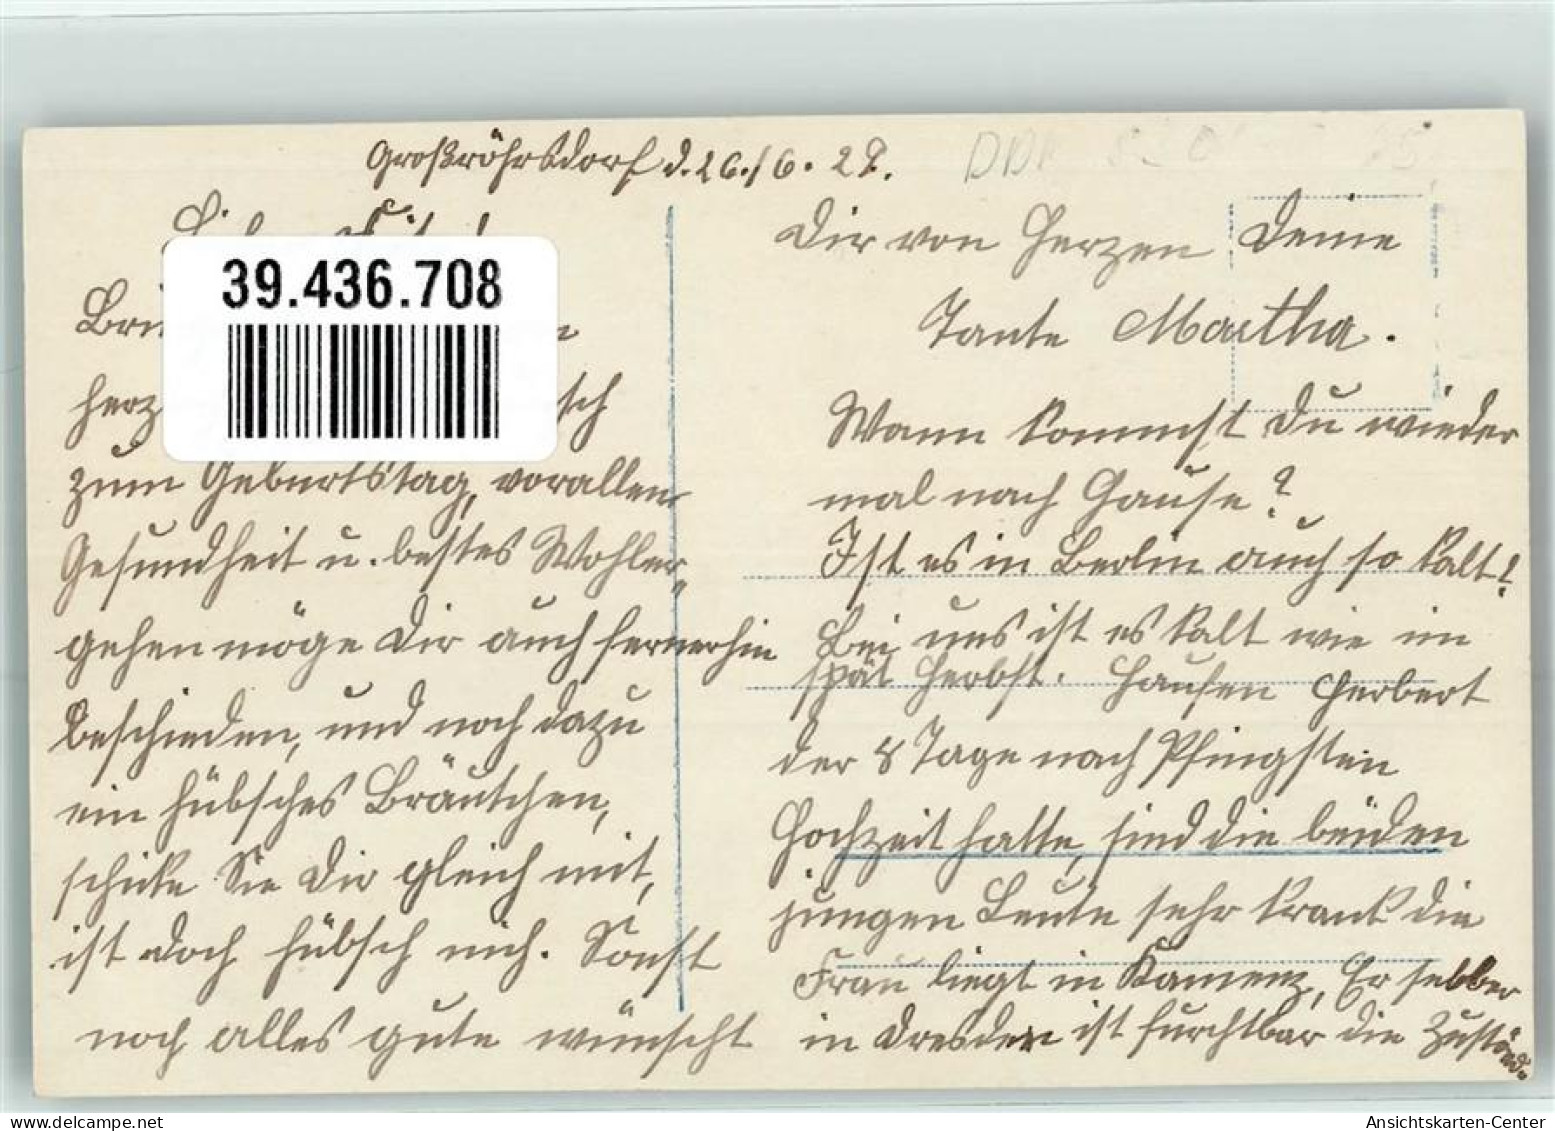 Großröhrsdorf d. 26./6. 28.
39.436.708
herz
zum Geburtstag, vorallem
Gesundheit u. bestes Wohler-
gehen möge Dir auch fernerhin
beschieden, und noch dazu
ein hübsches Bräutchen,
schicke Sie Dir gleich mit,
ist doch hübsch nich. Sonst
noch alles gute wünscht
Dir von Herzen Deine
Tante Martha.
Wann kommst Du wieder
mal nach Hause?
Ist es in Berlin auch so kalt?
Bei uns ist es kalt wie im
spät Herbst. Hausen Herbert
der 8 Tage nach Pfingsten
Hochzeit hatte, sind die beiden
jungen Leute sehr krank die
Frau liegt in Kamenz, Er selber
in Dresden ist furchtbar die Zustände
Ansichtskarten-Center